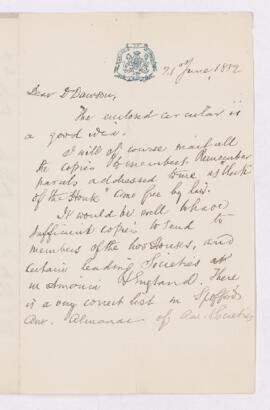 21st June, 1882
Dear Dr Dawson,
The enclosed circular is
a good idea.
I will of course mail all
the copies to members. Remember
parcels addressed to me as "Clerk
of the House" come free by law.
It would be well to have
sufficient copies to send to
members of the two Houses, and
certain leading Societies
in America & England. There
is a very correct list in Spofford's
Amr. Almanac of Am. Societies